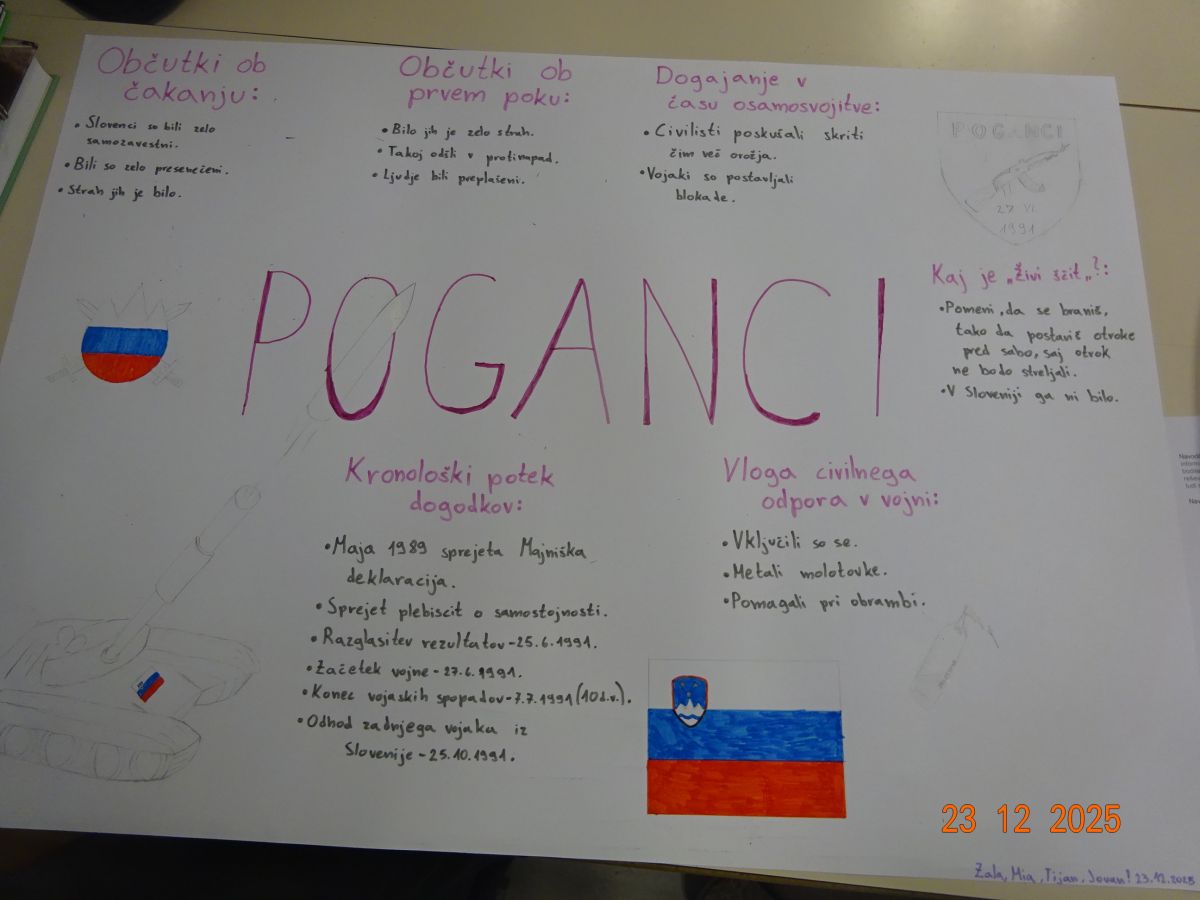 Občutki ob
čakanju:
• Slovenci so bili zelo
samozavestni.
• Bili so zelo presenečeni.
• Strah jih je bilo.
Občutki ob
prvem poku:
• Bilo jih je zelo strah.
• Takoj odšli v protinapad.
• Ljudje bili preplašeni.
Dogajanje v
času osamosvojitve:
• Civilisti poskušali skriti
čim več orožja.
• Vojaki so postavljali
blokade.
POGANCI
27 VI.
1991
POGANCI
Kaj je „živi ščit„?:
• Pomeni, da se braniš,
tako da postaviš otroke
pred sabo, saj otrok
ne bodo streljali.
• V Sloveniji ga ni bilo.
Kronološki potek
dogodkov:
• Maja 1989 sprejeta Majniška
deklaracija.
• Sprejet plebiscit o samostojnosti.
• Razglasitev rezultatov - 25.6.1991.
• Začetek vojne - 27.6.1991.
• Konec vojaskih spopadov - 7.7.1991 (10d.v.).
• Odhod zadnjega vojaka iz
Slovenije - 25.10.1991.
Vloga civilnega
odpora v vojni:
• Vključili so se.
• Metali molotovke.
• Pomagali pri obrambi.
23 12 2025
Zala, Mia, Tijan, Jovan! 23.12.2025